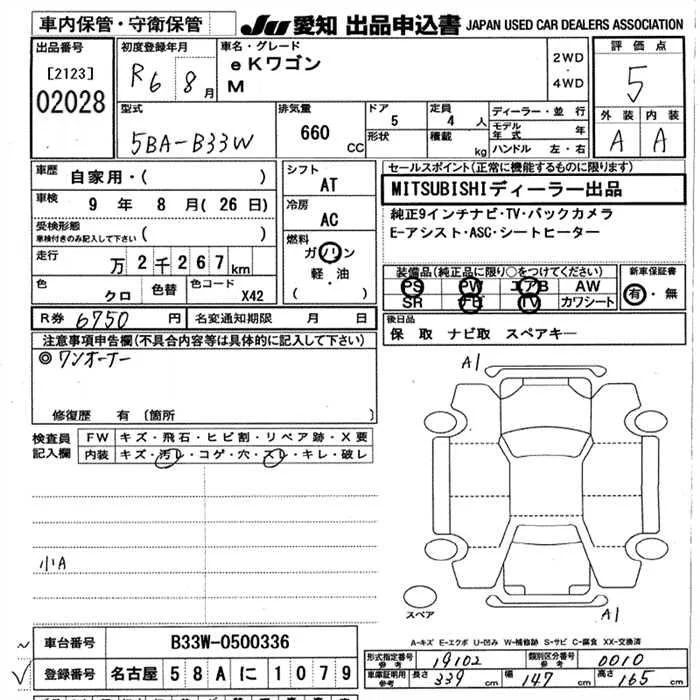 車内保管・守衛保管
JU 愛知 出品申込書 JAPAN USED CAR DEALERS ASSOCIATION
出品番号
[2123]
02028
初度登録年月
R6 8月
車名・グレード
eKワゴン
M
2WD
・
4WD
評価点
5
外装 内装
A A
型式
5BA-B33W
排気量
660 CC
ドア
5
形状
定員
4 人
積載
kg
ディーラー・並行
モデル年式 年
ハンドル 左・右
車歴 自家用・( )
車検 9年 8月(26日)
受検形態
車検付きのみ記入して下さい ( )
走行 万2千267km
色 クロ 色替 色コード X42
シフト
AT
冷房
AC
燃料
ガソリン
軽・油
( )
セールスポイント(正常に機能するものに限ります)
MITSUBISHIディーラー出品
純正9インチナビ・TV・バックカメラ
E-アシスト・ASC・シートヒーター
装備品(純正品に限り○をつけてください)
PS PW エアB AW
SR TV カワシート
新車保証書
有・無
R券 6750 円 名変通知期限 月 日
後日品
保 取 ナビ取 スペアキー
注意事項申告欄(不具合内容等は具体的に記入して下さい)
◎ワンオーナー
修復歴 有(箇所 )
検査員記入欄
FW キズ・飛石・ヒビ割・リペア跡・X要
内装 キズ・汚レ・コゲ・穴・スレ・キレ・破レ
小A
A1
スペア
A1
A-キズ E-エクボ U-凹み W-補修跡 S-サビ C-腐食 XX-交換済
車台番号 B33W-0500336
登録番号 名古屋 58Aに1079
形式指定番号 参考 19102 類別区分番号 参考 0010
車庫証明用 参考 長さ 339cm 幅 147cm 高さ 165cm